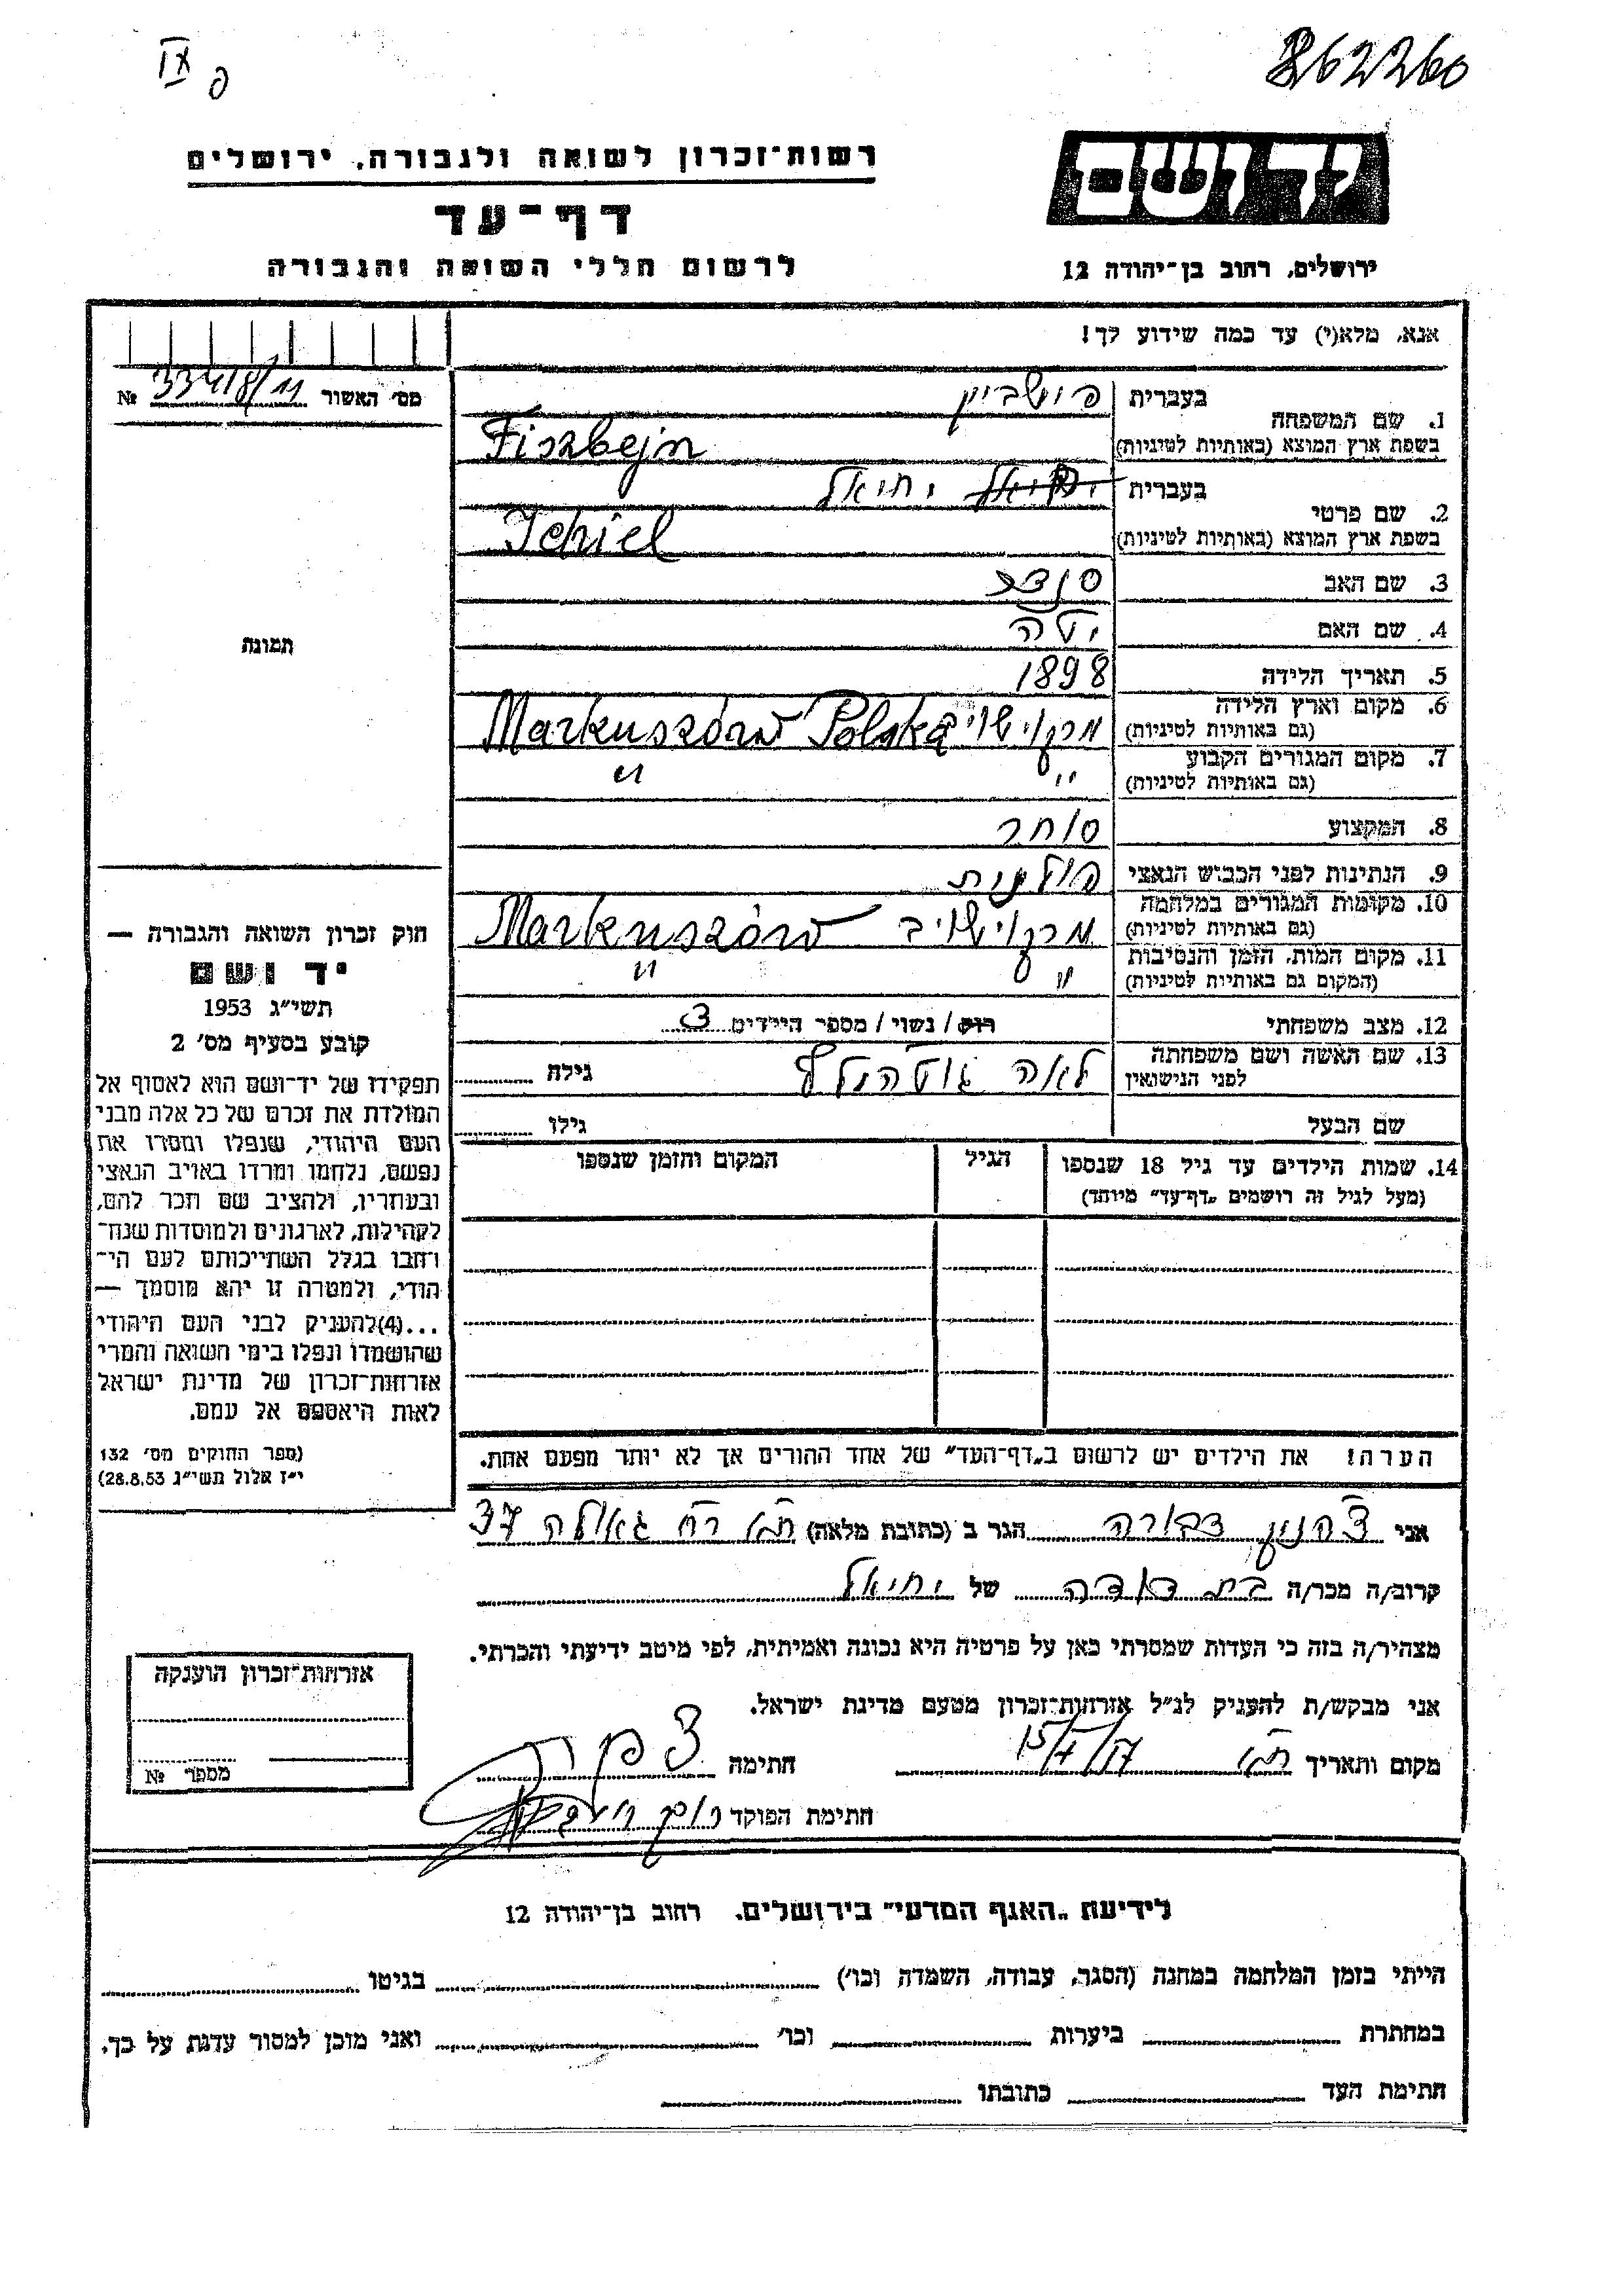 262260
יד ושם
רשות־זכרון לשואה ולגבורה, ירושלים
דף־עד
לרשום חללי השואה והגבורה
ירושלים, רחוב בן־יהודה 12
אנא, מלא(י) עד כמה שידוע לך!
מס׳ האשור 33418/11 №
תמונה
חוק זכרון השואה והגבורה —
יד ושם
תשי״ג 1953
קובע בסעיף מס׳ 2
תפקידו של יד־ושם הוא לאסוף אל
המולדת את זכרם של כל אלה מבני
העם היהודי, שנפלו ומסרו את
נפשם, נלחמו ומרדו באויב הנאצי
ובעוזריו, ולהציב שם וזכר להם,
לקהילות, לארגונים ולמוסדות שנח־
רבו בגלל השתייכותם לעם הי־
הודי, ולמטרה זו יהא מוסמך —
...(4)להעניק לבני העם היהודי
שהושמדו ונפלו בימי השואה והמרי
אזרחות־זכרון של מדינת ישראל
לאות היאספם אל עמם.
(ספר החוקים מס׳ 132
י״ז אלול תשי״ג 28.8.53)
1. שם המשפחה בעברית פישביין
בשפת ארץ המוצא (באותיות לטיניות) Fiszbejn
2. שם פרטי בעברית יחיאל
בשפת ארץ המוצא (באותיות לטיניות) Ichiel
3. שם האב סנדר
4. שם האם יטה
5. תאריך הלידה 1898
6. מקום וארץ הלידה (גם באותיות לטיניות) מרקושוב Markuszów Polska
7. מקום המגורים הקבוע (גם באותיות לטיניות) " "
8. המקצוע סוחר
9. הנתינות לפני הכבוש הנאצי פולנית
10. מקומות המגורים במלחמה (גם באותיות לטיניות) מרקושוב Markuszów
11. מקום המות, הזמן והנסיבות (המקום גם באותיות לטיניות) " "
12. מצב משפחתי רווק / נשוי / מספר הילדים 3
13. שם האשה ושם משפחתה לפני הנישואין לאה גוטהולץ גילה
שם הבעל גילו
14. שמות הילדים עד גיל 18 שנספו (מעל לגיל זה רושמים „דף־עד״ מיוחד) הגיל המקום והזמן שנספו
הערה! את הילדים יש לרשום ב„דף־העד״ של אחד ההורים אך לא יותר מפעם אחת.
אני דבורה הגר ב (כתובת מלאה) ת״א רח גאולה 37
קרוב/ה מכר/ה בת דודה של יחיאל
מצהיר/ה בזה כי העדות שמסרתי כאן על פרטיה היא נכונה ואמיתית, לפי מיטב ידיעתי והכרתי.
אני מבקש/ת להעניק לנ״ל אזרחות־זכרון מטעם מדינת ישראל.
מקום ותאריך ת״א חתימה
חתימת הפוקד
אזרחות־זכרון הוענקה
מספר №
לידיעת „האגף המדעי״ בירושלים. רחוב בן־יהודה 12
הייתי בזמן המלחמה במחנה (הסגר, עבודה, השמדה וכו׳) בגיטו
במחתרת ביערות וכו׳ ואני מוכן למסור עדות על כך.
חתימת העד כתובתו